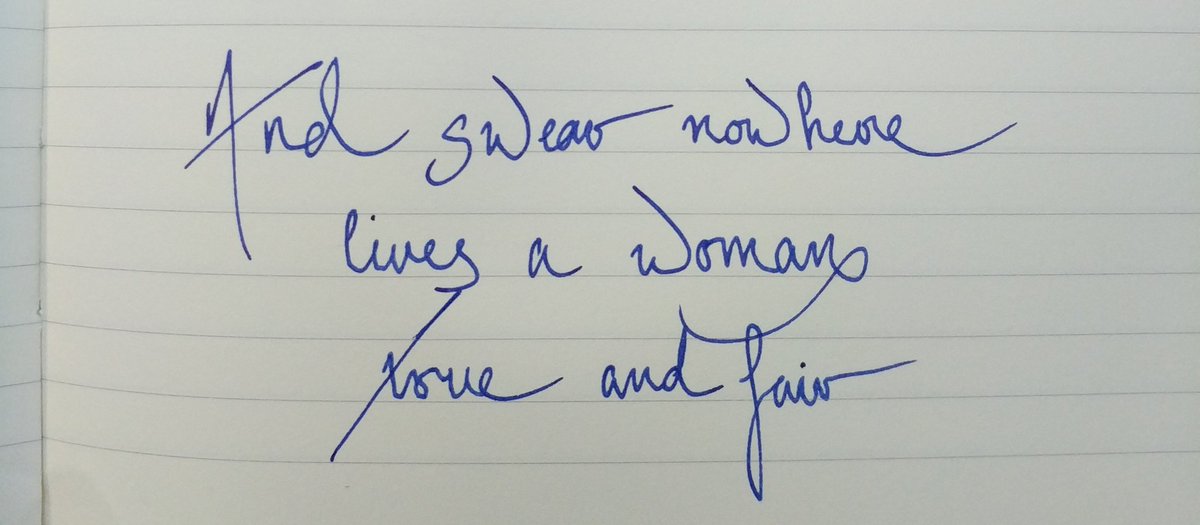 And swear nowhere
lives a woman
true and fair